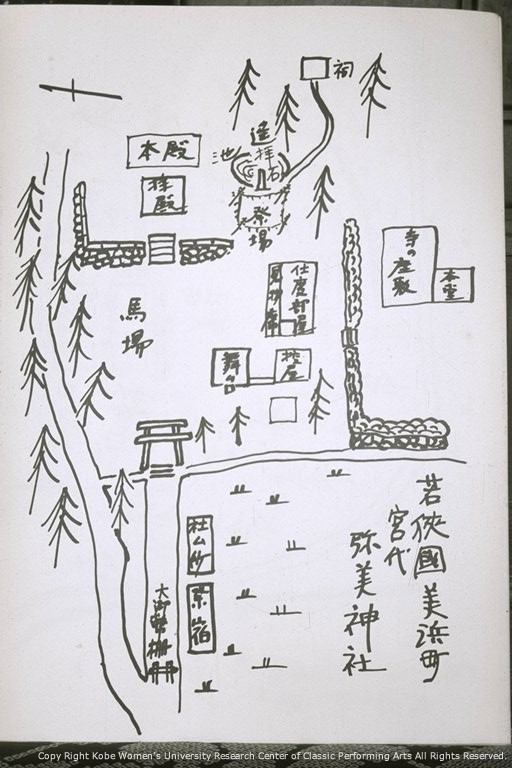 祠
遥拝石
池
本殿
拝殿
祭場
寺の座敷
本堂
仕度部屋
馬場
舞台
控屋
若狭國美浜町
宮代
弥美神社
社ム所
茶宿
大御幣柵
Copy Right Kobe Women's University Research Center of Classic Performing Arts All Rights Reserved.